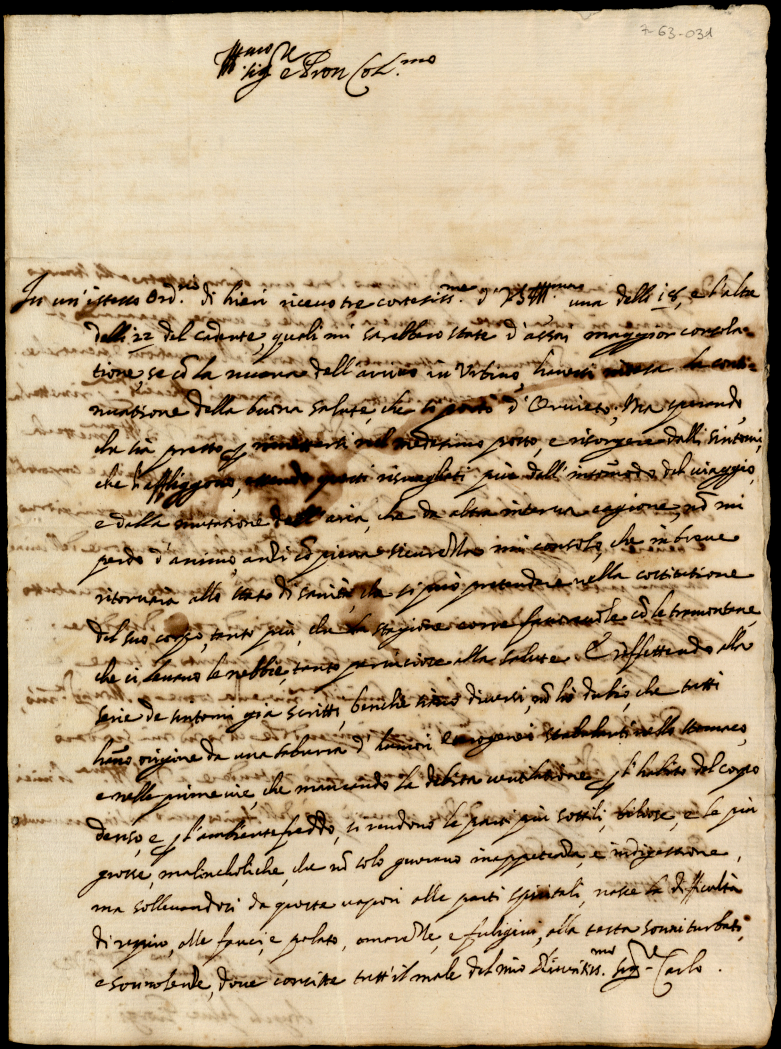 7-63-031
Ill.mo
Sig.re e Pron Col.mo
In un'istesso Ord.rio di hieri ricevo tre cortesiss.me d' V.S. Ill.ma una delli 18, e l'altre
delli 22 del cadente, quali mi sarebbero state d'assai maggior consola-
tione, se cõ la nuova dell'arrivo in Urbino, havessi intesa la conti-
nuatione della buona salute, che si portò d'Orvieto, Ma sperando,
che sia presto p rimettersi nel medesimo posto, e risorgere dalli sintomi,
che l'affliggono, essendo questi risvegliati più dall'incõmodo del viaggio,
e dalla mutatione dell'aria, che da altra interna cagione, nõ mi
perdo d'animo, anzi cõ piena sicurezza mi consolo, che in breve
ritornarà allo stato di sanità, che si può pretendere nella costitutione
del suo corpo, tanto più, che la stagione corre favorevole cõ le tramontane,
che ci levano le nebbie, tanto perniciose alla salute. E riflettendo alla
serie de sintomi già scritti, benche siano diversi, nõ hò dubio, che tutti
hãno origine da una saburra d'humori eterogenei stabuliti nello stomaco,
e nelle prime vie, che mancando la debita ventilatione p l'habito del corpo
denso, e p l'ambiente freddo, si rendono le parti più sottili, biliose, e le più
grosse, malincholiche, che nõ solo generano inappetenza, e indigestione,
ma sollevandosi da queste vapori alle parti spiritali, nasce la difficoltà
di respiro, alle fauci, e palato, amarezze, e fuligini, alla testa sonni turbati,
e sonnolenze, dove consiste tutt'il male del mio Riveritiss.mo Sig.re Carlo.